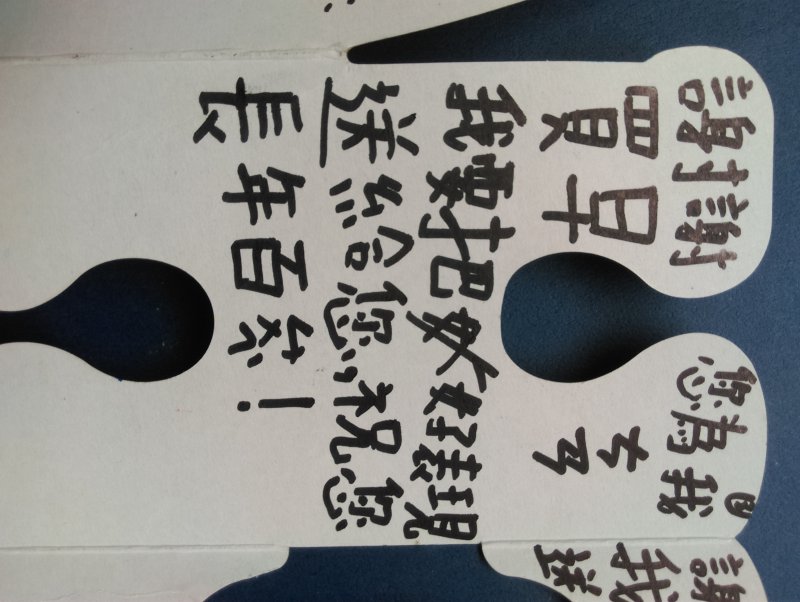 謝謝您為我
買早ㄘㄢ
我要把更好表現
送給您,祝您
長年百!
謝
我
送